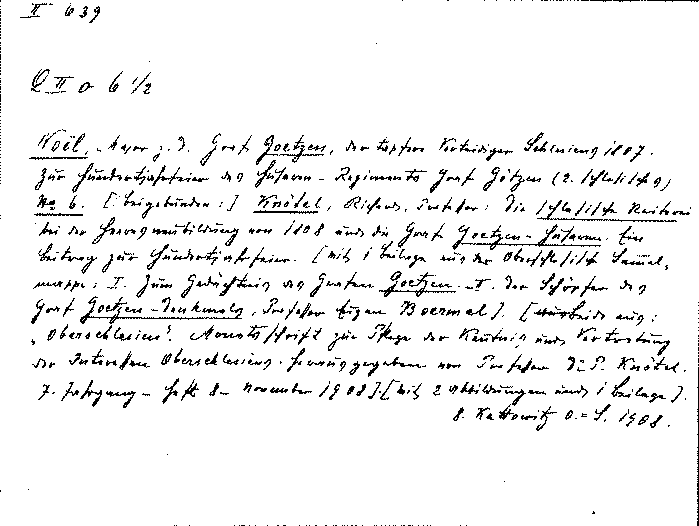 II 639
Q II o 6 1/2
Noël, Major z. D. Graf Goetzen, der tapfere Verteidiger Schlesiens 1807.
Zur Hundertjahrfeier des Husaren-Regiments Graf Götzen (2. Schlesisches)
No 6. [beigebunden:] Knötel, Richard, Professor: Die schlesische Reiterei
bei der Heeresneubildung von 1808 und die Graf Goetzen-Husaren. Ein
Beitrag zur Hundertjahrfeier. [mit 1 Beilage aus der Oberschlesisch Sammel-
mappe: I. Zum Gedächtnis des Grafen Goetzen. II. der Schöpfer des
Graf Goetzen-Denkmals, Professor Eugen Boermel). [Beide aus:
"Oberschlesien". Monatsschrift zur Pflege der Kenntnis und Vertretung
der Interessen Oberschlesiens. Herausgegeben von Professor Dr P. Knötel.
7. Jahrgang - Heft 8 - November 1908].[mit 2 Abbildungen und 1 Beilage].
8. Kattowitz O.=S. 1908.